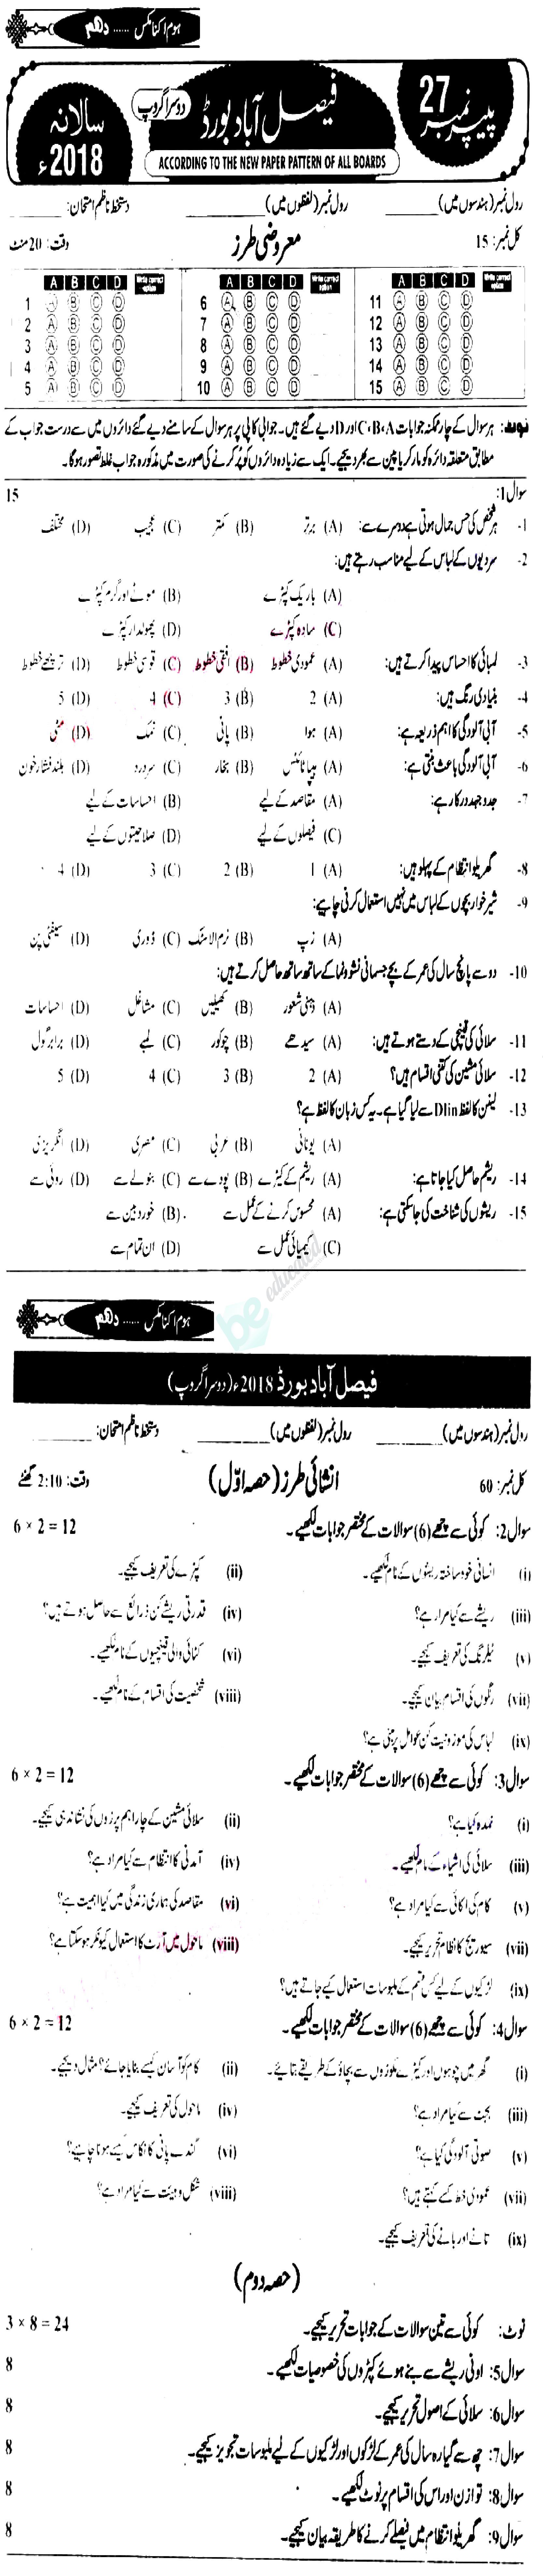 ہوم اکنامکس ...... دہم
پیپر نمبر 27
فیصل آباد بورڈ
دوسرا گروپ
سالانہ 2018ء
ACCORDING TO THE NEW PAPER PATTERN OF ALL BOARDS
رول نمبر (ہندسوں میں) ________ رول نمبر (لفظوں میں) ________ دستخط ناظم امتحان: ________
کل نمبر: 15 معروضی طرز وقت: 20 منٹ
A B C D Write correct option A B C D Write correct option A B C D Write correct option
1 A B C D 6 A B C D 11 A B C D
2 A B C D 7 A B C D 12 A B C D
3 A B C D 8 A B C D 13 A B C D
4 A B C D 9 A B C D 14 A B C D
5 A B C D 10 A B C D 15 A B C D
نوٹ: ہر سوال کے چار ممکنہ جوابات C، B، A اور D دیے گئے ہیں۔ جوابی کاپی پر ہر سوال کے سامنے دیے گئے دائروں میں سے درست جواب کے
مطابق متعلقہ دائرہ کو مارکر یا پین سے بھر دیجیے۔ ایک سے زیادہ دائروں کو پُر کرنے کی صورت میں مذکورہ جواب غلط تصور ہوگا۔
سوال 1: 15
1- ہر شخص کی حس جمال ہوتی ہے دوسرے سے: (A) برتر (B) کمتر (C) عجیب (D) مختلف
2- سردیوں کے لباس کے لیے مناسب رہتے ہیں:
(A) باریک کپڑے (B) موٹے اور گرم کپڑے
(C) سادہ کپڑے (D) پھولدار کپڑے
3- لمبائی کا احساس پیدا کرتے ہیں: (A) عمودی خطوط (B) افقی خطوط (C) قوسی خطوط (D) ترچھے خطوط
4- بنیادی رنگ ہیں: (A) 2 (B) 3 (C) 4 (D) 5
5- آبی آلودگی کا اہم ذریعہ ہے: (A) ہوا (B) پانی (C) نمک (D) مٹی
6- آبی آلودگی باعث بنتی ہے: (A) ہیپاٹائٹس (B) بخار (C) سردرد (D) بلند فشار خون
7- جدوجہد درکار ہے: (A) مقاصد کے لیے (B) احساسات کے لیے
(C) فیصلوں کے لیے (D) صلاحیتوں کے لیے
8- گھریلو انتظام کے پہلو ہیں: (A) 1 (B) 2 (C) 3 (D) 4
9- شیرخوار بچوں کے لباس میں نہیں استعمال کرنی چاہیے:
(A) زپ (B) نرم الاسٹک (C) ڈوری (D) سیفٹی پن
10- دو سے پانچ سال کی عمر کے بچے جسمانی نشوونما کے ساتھ ساتھ حاصل کرتے ہیں:
(A) ذہنی شعور (B) کھیلیں (C) مشاغل (D) احساسات
11- سلائی کی قینچی کے دستے ہوتے ہیں: (A) سیدھے (B) چوکور (C) لمبے (D) برابر گول
12- سلائی مشین کی کتنی اقسام ہیں؟ (A) 2 (B) 3 (C) 4 (D) 5
13- لینن کا لفظ Dlin سے لیا گیا ہے۔ یہ کس زبان کا لفظ ہے؟
(A) یونانی (B) عربی (C) مصری (D) انگریزی
14- ریشم حاصل کیا جاتا ہے: (A) ریشم کے کیڑے (B) پودے سے (C) بنولے سے (D) روئی سے
15- ریشوں کی شناخت کی جاسکتی ہے: (A) محسوس کرنے کے عمل سے (B) خوردبین سے
(C) کیمیائی عمل سے (D) ان تمام سے
be educated
ہوم اکنامکس ...... دہم
فیصل آباد بورڈ 2018ء (دوسرا گروپ)
رول نمبر (ہندسوں میں) ________ رول نمبر (لفظوں میں) ________ دستخط ناظم امتحان: ________
کل نمبر: 60 انشائی طرز (حصہ اوّل) وقت: 2:10 گھنٹے
سوال 2: کوئی سے چھے (6) سوالات کے مختصر جوابات لکھیے۔ 6 × 2 = 12
(i) انسانی خود ساختہ ریشوں کے نام لکھیے۔ (ii) کپڑے کی تعریف کیجیے۔
(iii) ریشے سے کیا مراد ہے؟ (iv) قدرتی ریشے کن ذرائع سے حاصل ہوتے ہیں؟
(v) ٹیلرنگ کی تعریف کیجیے۔ (vi) کٹائی والی قینچیوں کے نام لکھیے۔
(vii) رنگوں کی اقسام بیان کیجیے۔ (viii) شخصیت کی اقسام کے نام لکھیے۔
(ix) لباس کی موزونیت کن عوامل پر مبنی ہے؟
سوال 3: کوئی سے چھے (6) سوالات کے مختصر جوابات لکھیے۔ 6 × 2 = 12
(i) نمدہ کیا ہے؟ (ii) سلائی مشین کے چار اہم پرزوں کی نشاندہی کیجیے۔
(iii) سلائی کی اشیاء کے نام لکھیے۔ (iv) آمدنی کا انتظام سے کیا مراد ہے؟
(v) کام کی اکائی سے کیا مراد ہے؟ (vi) مقاصد کی ہماری زندگی میں کیا اہمیت ہے؟
(vii) سیوریج کا نظام تحریر کیجیے۔ (viii) ماحول میں آرٹ کا استعمال کیونکر ہوسکتا ہے؟
(ix) لڑکیوں کے لیے کس قسم کے ملبوسات استعمال کیے جاتے ہیں؟
سوال 4: کوئی سے چھے (6) سوالات کے مختصر جوابات لکھیے۔ 6 × 2 = 12
(i) گھر میں چوہوں اور کیڑے مکوڑوں سے بچاؤ کے طریقے بتائیے۔ (ii) کام کو آسان کیسے بنایا جائے؟ مثال دیجیے۔
(iii) بجٹ سے کیا مراد ہے؟ (iv) ماحول کی تعریف کیجیے۔
(v) صوتی آلودگی کیا ہے؟ (vi) گندے پانی کا نکاس کیسے ہونا چاہیے؟
(vii) عمودی خط کسے کہتے ہیں؟ (viii) شکل و ہیئت سے کیا مراد ہے؟
(ix) تانے اور بانے کی تعریف کیجیے۔
(حصہ دوم)
نوٹ: کوئی سے تین سوالات کے جوابات تحریر کیجیے۔ 3 × 8 = 24
سوال 5: اونی ریشے سے بنے ہوئے کپڑوں کی خصوصیات لکھیے۔ 8
سوال 6: سلائی کے اصول تحریر کیجیے۔ 8
سوال 7: چھ سے گیارہ سال کی عمر کے لڑکوں اور لڑکیوں کے لیے ملبوسات تجویز کیجیے۔ 8
سوال 8: توازن اور اس کی اقسام پر نوٹ لکھیے۔ 8
سوال 9: گھریلو انتظام میں فیصلے کرنے کا طریقہ بیان کیجیے۔ 8